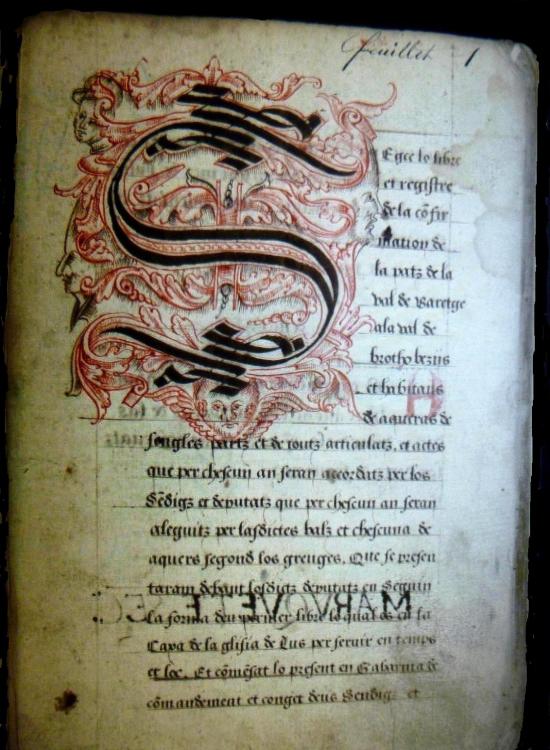 feuillet 1
S
Egee lo libre
et registre
de la cõfir
mation de
la patz de la
val de varetge
ala val de
brotho bezïis
et habitans
de aqueras de
sengles partz et de toutz articulatz, et actes
que per chescun an seran accordatz per los
Sẽdigz et deputatz que per chescun an seran
aleguitz per lasdictes balz et chescuna de
aqueres segond los greuges. Que se presen
taram debant losdictz deputatz en Seguin
la forma deu permer libre loqual es en la
Caxa de la glisia de Lus per seruir en temps
et loc. Et cõmẽsat lo present en Gabarnia de
cõmandement et conget deus Sendigz et